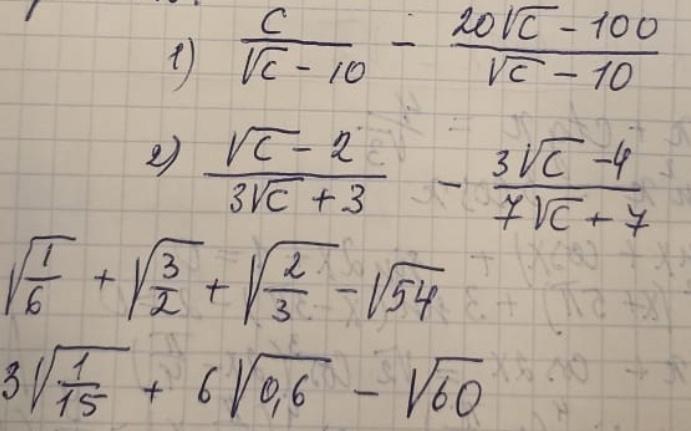 1) c/(√c - 10) - (20√c - 100)/(√c - 10)
2) (√c - 2)/(3√c + 3) - (3√c - 4)/(7√c + 7)
√(1/6) + √(3/2) + √(2/3) - √54
3√(1/15) + 6√0,6 - √60